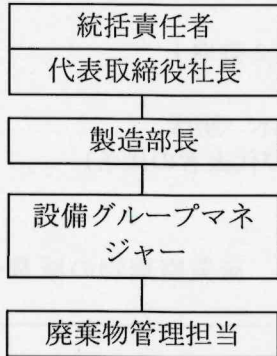 統括責任者
代表取締役社長
製造部長
設備グループマネ
ジャー
廃棄物管理担当